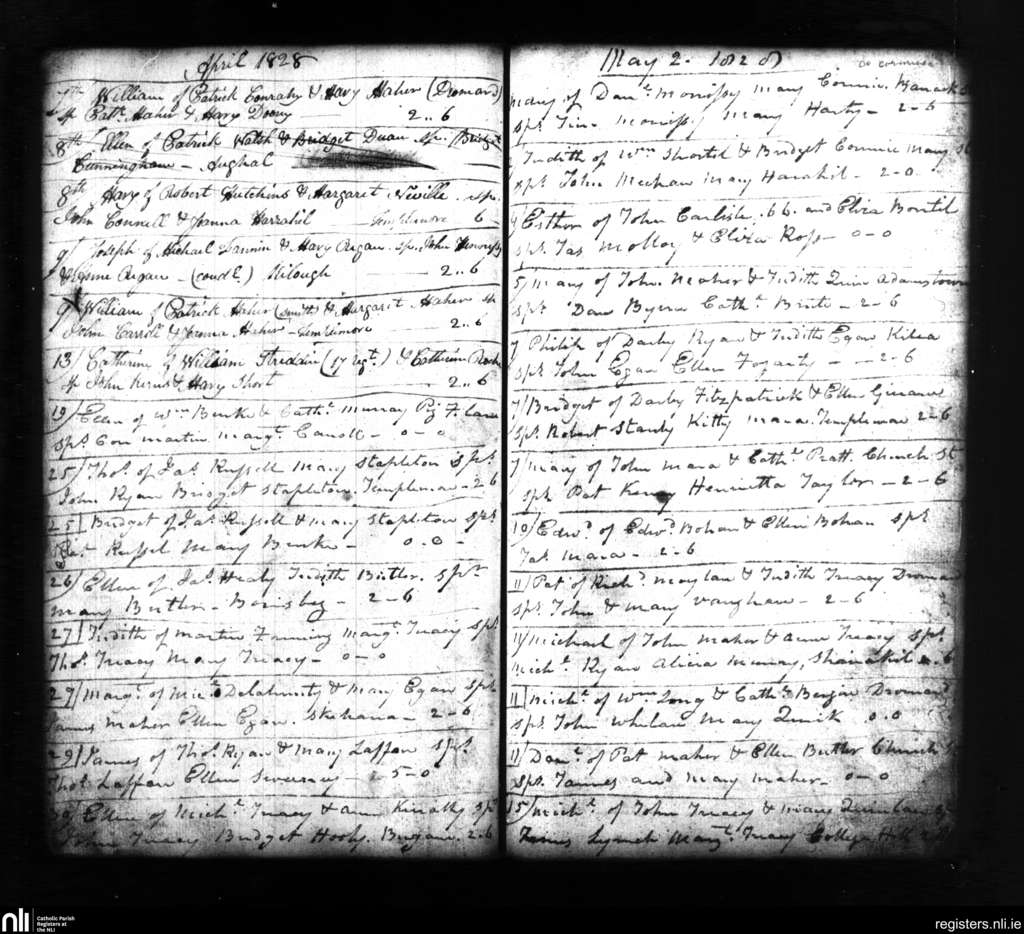 April 1828
7th William of Patrick Conraby & Mary Maher (Dromard)
sp Cath. Maher & Mary Doony 2..6
8th Ellen of Patrick Walsh & Bridget Duan sp. Bridget
Cunningham - Aughal
8th Mary of Robert Hutchins & Margaret Neville. sp.
John Connell & Hanna Harrahil 6 -
9th Joseph of Michael Lannin & Mary Ryan. sp. John
& Anne Ryan - (condl.) Kilough 2..6
9 William of Patrick Maher (smith) & Margaret Maher sp
John Carroll & Maher 2..6
13/ Catherine of William (17 Regt.) & Catherine
sp John Kerns & Mary Short 2..6
19/ Ellen of Wm Burke & Cathe. Murray
sps. Con Martin Margt. Caroll - 0 - 0
25/ Thos. of Jas. Russell Mary Stapleton sps.
John Ryan Bridget Stapleton. Templemore - 2 6
25/ Bridget of Jas. Russell & Mary Stapleton sps
Pat. Russel Mary Burke - 0 - 0 -
26/ Ellen of Jas. Healy Judith Butler. sps.
Mary Butler - 2 - 6
27/ Judith of Martin Fanning Margt. Treacy sps.
Thos. Treacy Mary Treacy - 0 - 0
27/ Margt. of Michl. Delahunty & Mary Egan sps.
James Maher Ellen Egan. Skehana - 2 - 6
29/ James of Thos. Ryan & Mary Laffan sps.
Thos. Laffan Ellen - 2 - 5 - 0
Ellen of Michl. Treacy & Ann Kinally sps
Treacy Bridget 2 - 6
May 2. 1828
Mary of Danl. Morrissy Mary Connic. Barrack
sps. Tim. Morrissy Mary Harty - 2 - 6
Judith of Wm Shortil & Bridget Connic Mary St
sps. John Meehan Mary Harahil - 2 - 0.
4 Esther of John Carlisle. 66. and Eliza
sps. Jas Molloy & Eliza Ross - 0 - 0
5/ Mary of John Meaher & Judith Quin Adamstown
sps. Dan Byrne Cathe. - 2 - 6
7 Philip of Darby Ryan & Judith Egan Kilea
sps. John Egan Ellen Fogarty - 2 - 6
7/ Bridget of Darby Fitzpatrick & Ellen
sps. Robert Stanly Kitty Mara. Templemore 2 - 6
7/ Mary of John Mara & Cathe. Pratt. Church St
sps. Pat Kenny Henrietta Taylor - 2 - 6
10/ Edwd. of Edwd. Bohan & Ellen Bohan sps
Jas. Mara - 2 - 6
11/ Pat of Richd. Moylan & Judith Treacy Dromard
sps. John & Mary Vaughan - 2 - 6
11/ Michael of John Maher & Anne Treacy sps.
Michl. Ryan Alicia Murray, Shanakil 2 - 6
11/ Michl. of Wm Long & Cathe. Bergan Dromard
sps. John Whelan Mary Quirk 0 . 0
11/ Danl. of Pat Maher & Ellen Butler Church St
sps. James and Mary Maher - 0 - 0
15/ Michl. of John Treacy & Mary Quinlan sp
James Lynch Margt. Treacy College Hill
nli
Catholic Parish
Registers at
the NLI
registers.nli.ie